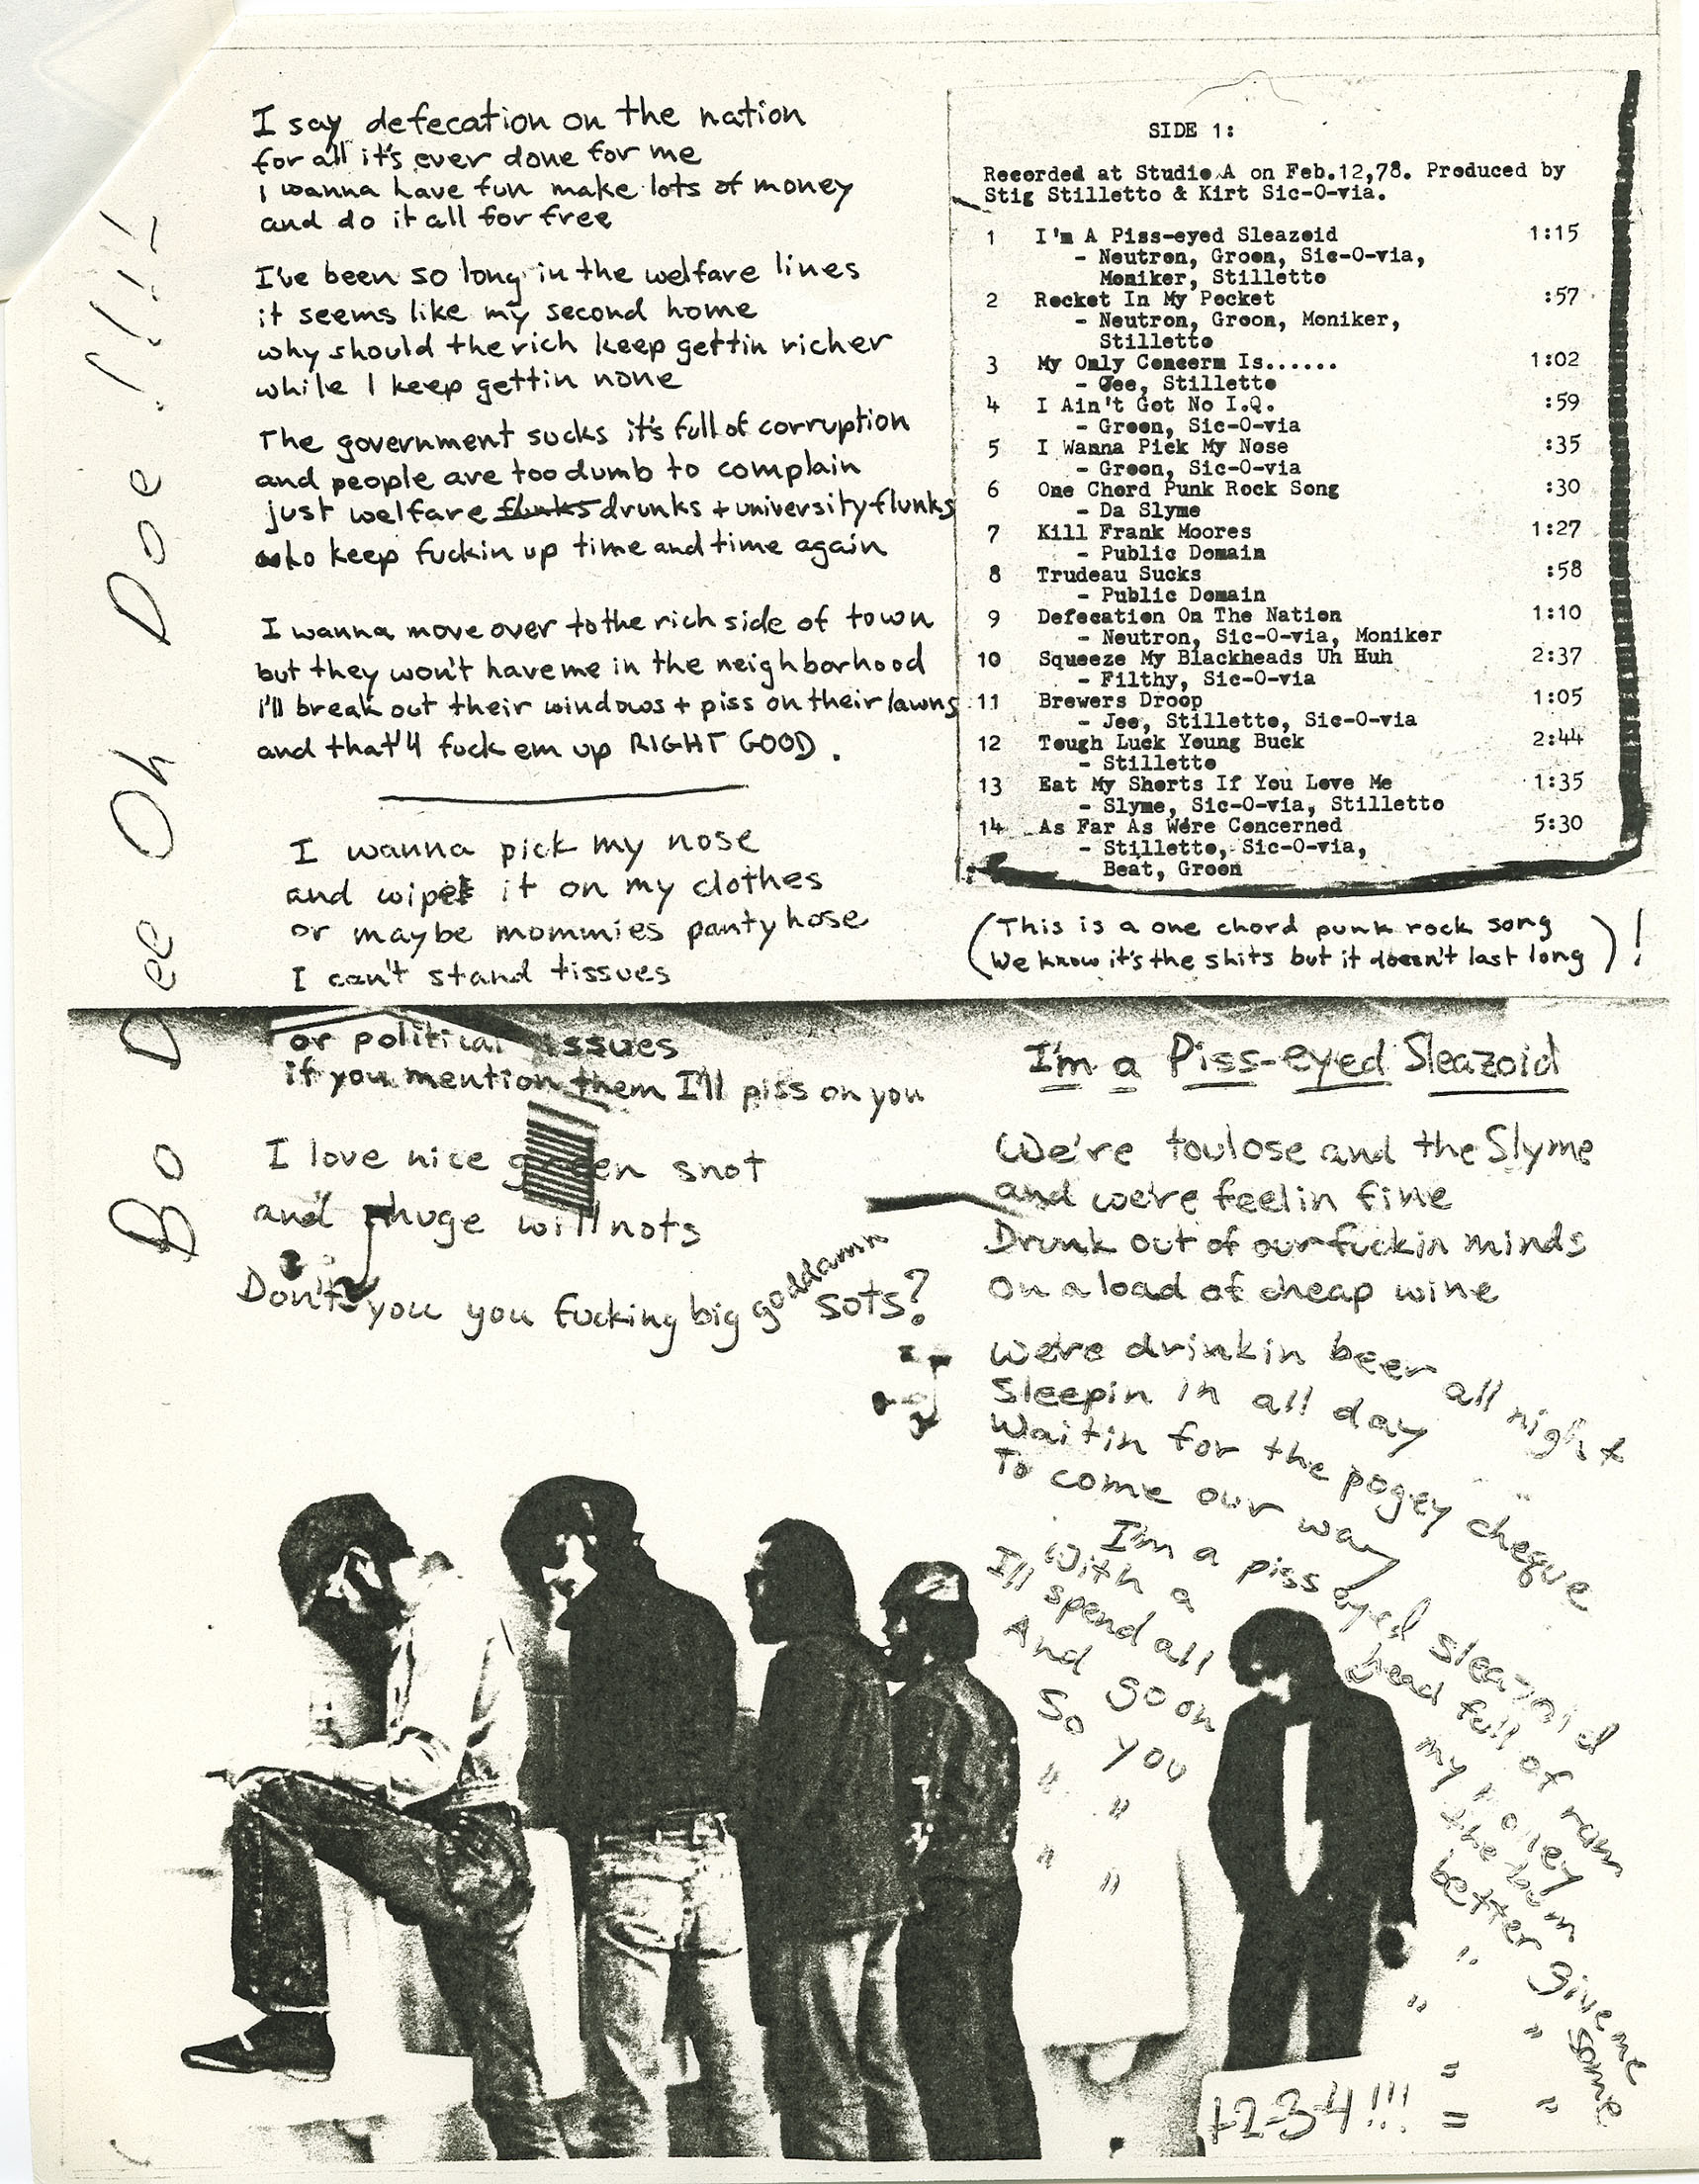 I say defecation on the nation
for all it's ever done for me
I wanna have fun make lots of money
and do it all for free
I've been so long in the welfare lines
it seems like my second home
why should the rich keep gettin richer
while I keep gettin none
The government sucks it's full of corruption
and people are too dumb to complain
just welfare flunks drunks + university flunks
who keep fuckin up time and time again
I wanna move over to the rich side of town
but they won't have me in the neighborhood
i'll break out their windows + piss on their lawns
and that'll fuck em up RIGHT GOOD.
I wanna pick my nose
and wipe it on my clothes
or maybe mommies panty hose
I can't stand tissues
or political issues
if you mention them I'll piss on you
I love nice green snot
and huge willnots
Don't you you fucking big goddamn sots?
Bo Dee Oh Doe !!!!
SIDE 1:
Recorded at Studio A on Feb.12,78. Produced by
Stig Stilletto & Kirt Sic-O-via.
1 I'm A Piss-eyed Sleazoid 1:15
- Neutron, Groon, Sic-O-via,
Moniker, Stilletto
2 Rocket In My Pocket :57
- Neutron, Groon, Moniker,
Stilletto
3 My Only Concern Is...... 1:02
- Jee, Stilletto
4 I Ain't Got No I.Q. :59
- Groon, Sic-O-via
5 I Wanna Pick My Nose :35
- Groon, Sic-O-via
6 One Chord Punk Rock Song :30
- Da Slyme
7 Kill Frank Moores 1:27
- Public Domain
8 Trudeau Sucks :58
- Public Domain
9 Defecation On The Nation 1:10
- Neutron, Sic-O-via, Moniker
10 Squeeze My Blackheads Uh Huh 2:37
- Filthy, Sic-O-via
11 Brewers Droop 1:05
- Jee, Stilletto, Sic-O-via
12 Tough Luck Young Buck 2:44
- Stilletto
13 Eat My Shorts If You Love Me 1:35
- Slyme, Sic-O-via, Stilletto
14 As Far As We're Concerned 5:30
- Stilletto, Sic-O-via,
Beat, Groon
(This is a one chord punk rock song
We know it's the shits but it doesn't last long)!
I'm a Piss-eyed Sleazoid
We're toulose and the Slyme
and we're feelin fine
Drunk out of our fuckin minds
On a load of cheap wine
We're drinkin beer all night
Sleepin in all day
Waitin for the pogey cheque
To come our way
I'm a piss eyed sleazoid
With a head full of rum
I'll spend all my money
And go on the bum
So you better give me some
" " " " " "
" " " " " "
1-2-3-4!!!